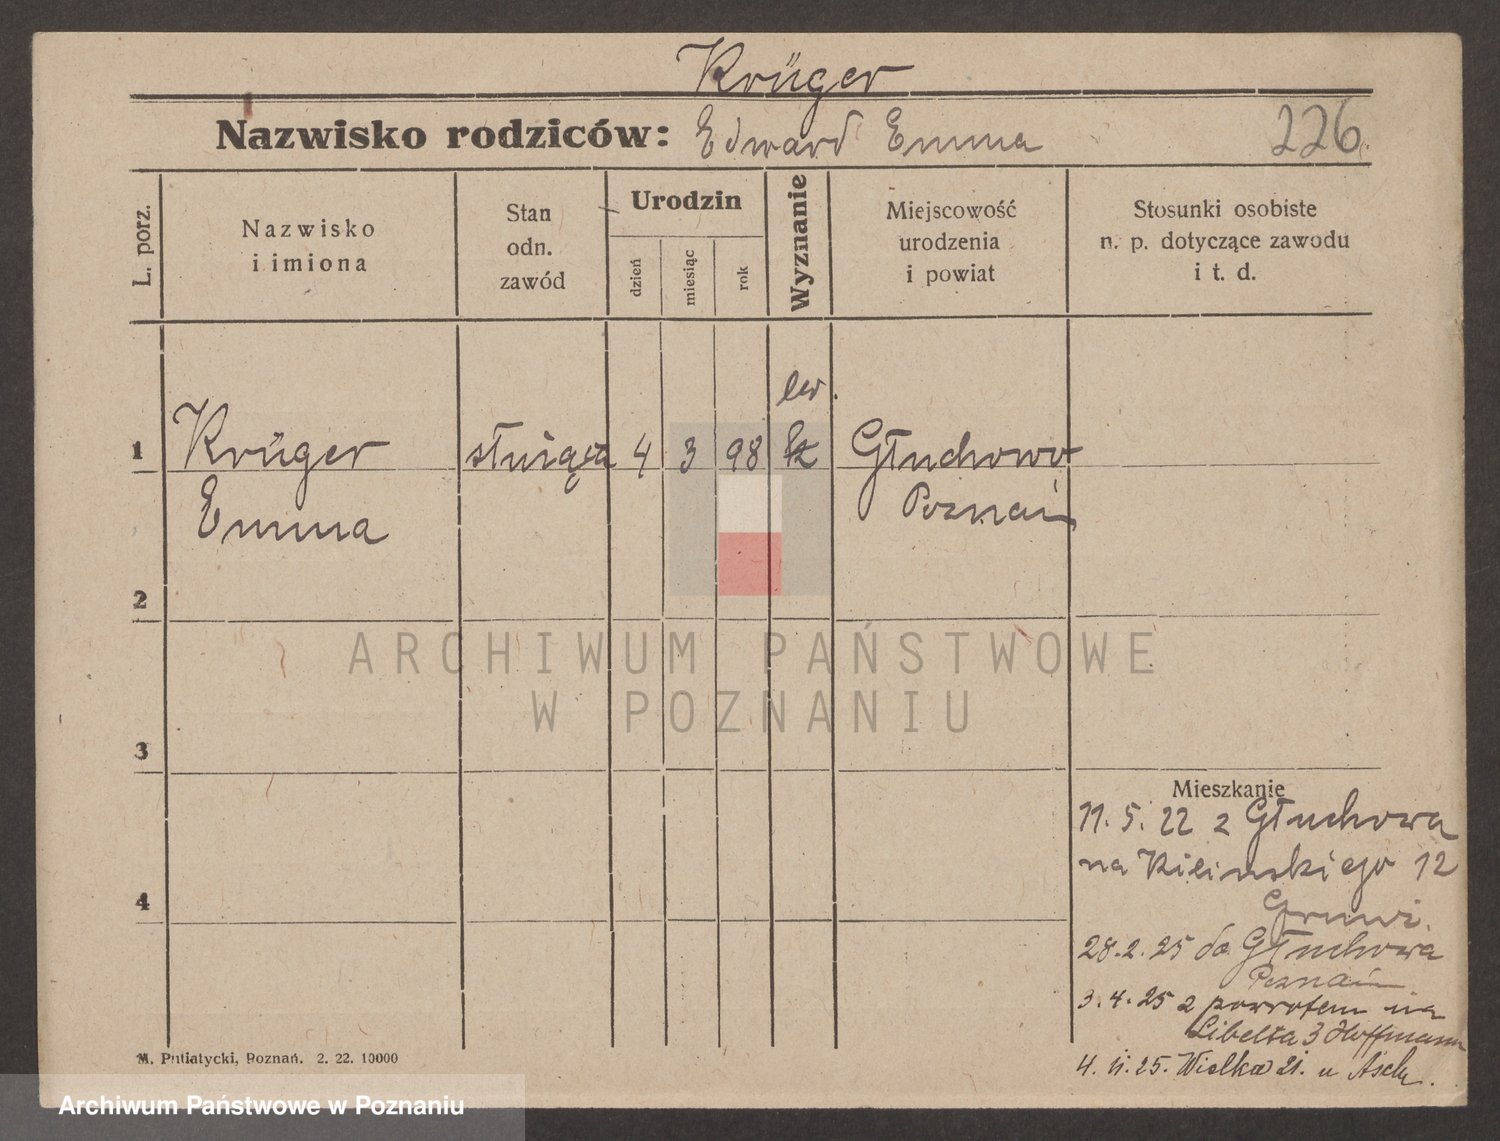 Krüger
Nazwisko rodziców: Edward Emma
226
L. porz.
Nazwisko
i imiona
Stan
odn.
zawód
Urodzin
dzień
miesiąc
rok
Wyznanie
Miejscowość
urodzenia
i powiat
Stosunki osobiste
n. p. dotyczące zawodu
i t. d.
ew.
1 Krüger służąca 4 3 98 Głuchowo
Emma Poznań
2
ARCHIWUM PAŃSTWOWE
W POZNANIU
3
Mieszkanie
11. 5. 22 z Głuchowa
na Kilińskiego 12
4
28. 2. 25 do Głuchowa
Poznań
3. 4. 25 z powrotem na
Libelta 3 Hoffmann
4. 11. 25. Wielka 21. u
M. Putiatycki, Poznań. 2. 22. 10000
Archiwum Państwowe w Poznaniu